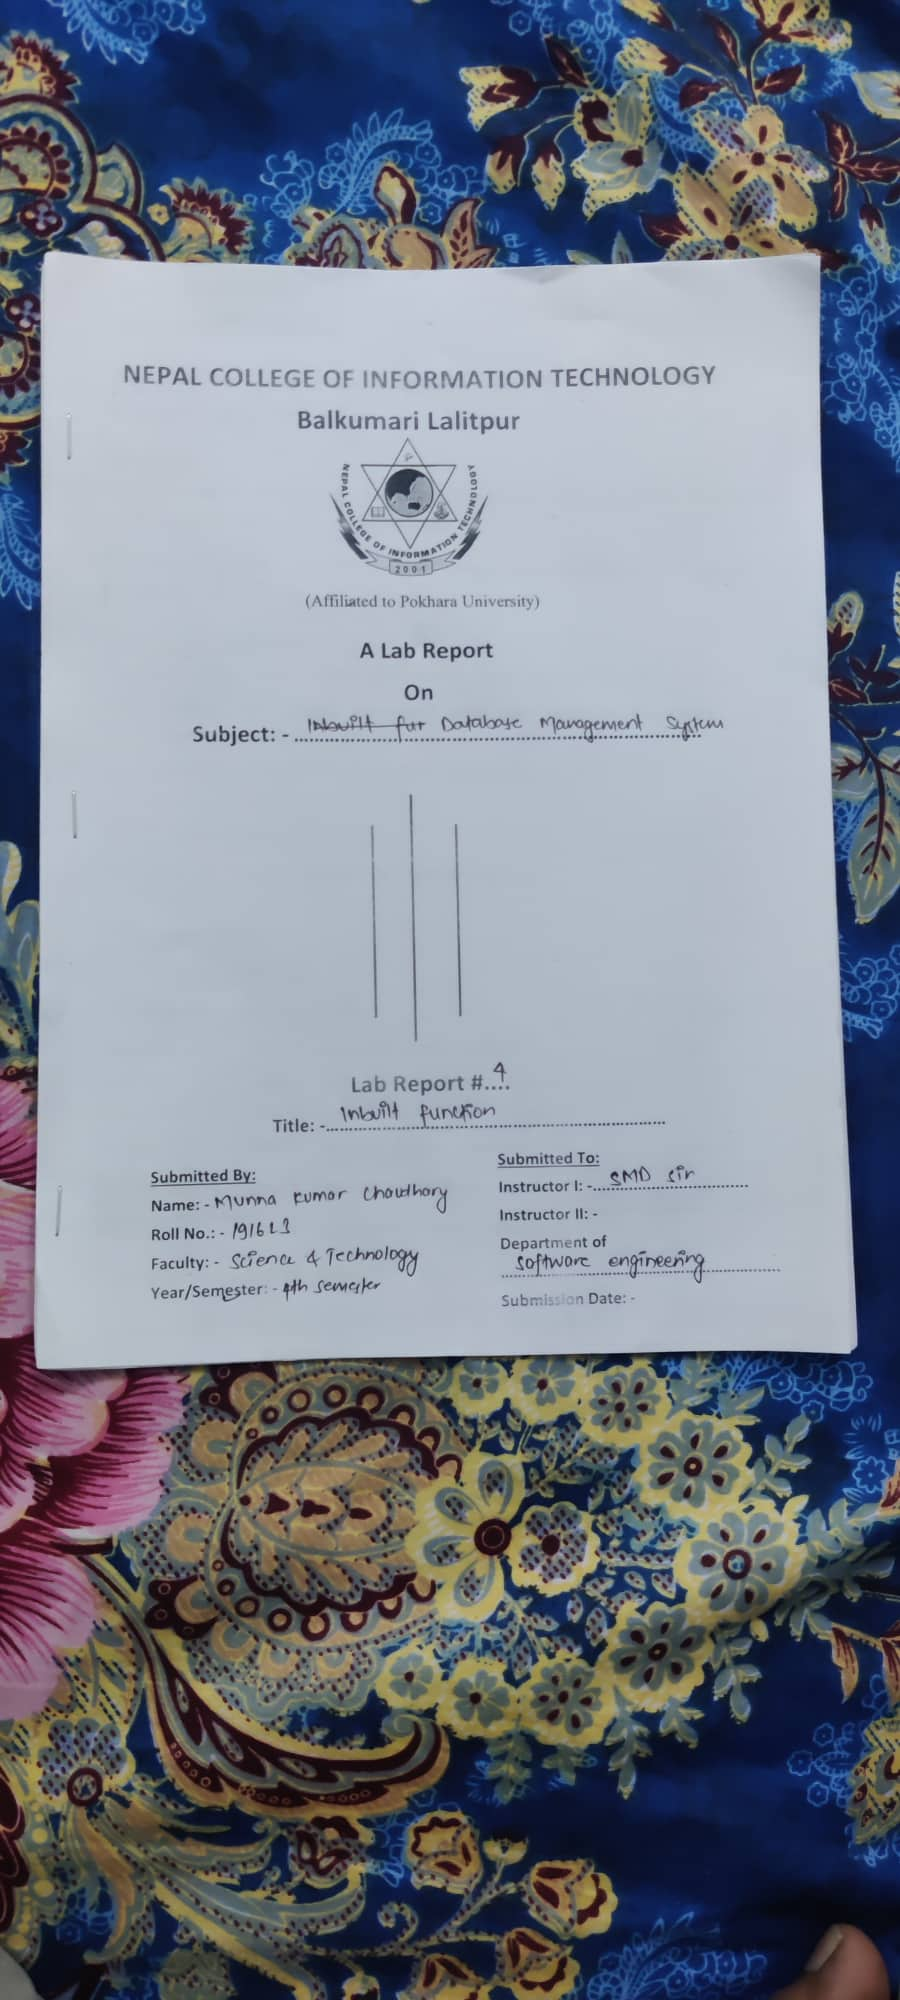 NEPAL COLLEGE OF INFORMATION TECHNOLOGY
Balkumari Lalitpur
NEPAL COLLEGE OF INFORMATION TECHNOLOGY
2001
(Affiliated to Pokhara University)
A Lab Report
On
Subject: - Inbuilt fur Database Management System
Lab Report #....4
Title: - Inbuilt function
Submitted By:
Name: - Munna kumar Chaudhary
Roll No.: - 191623
Faculty: - Science & Technology
Year/Semester: - 4th semester
Submitted To:
Instructor I: - SMD sir
Instructor II: -
Department of
software engineering
Submission Date: -